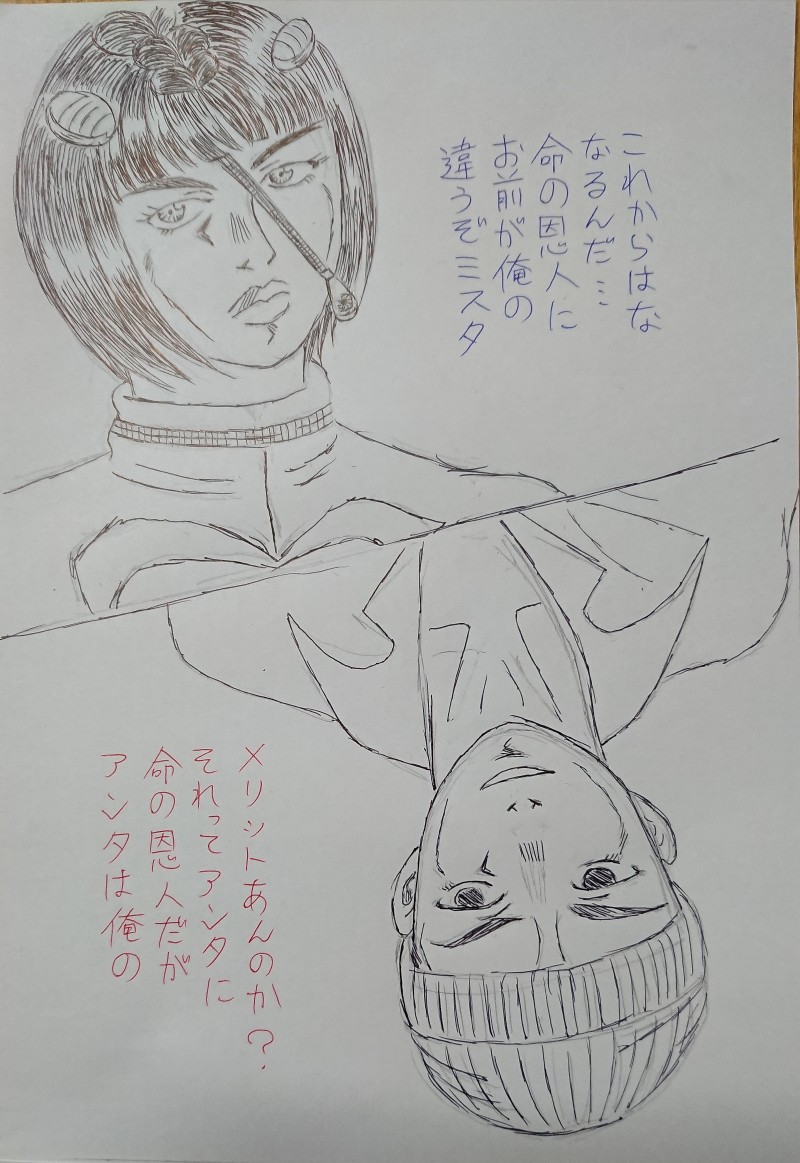 違うぞミスタ
お前が俺の
命の恩人に
なるんだ…
これからはな
アンタは俺の
命の恩人だが
それってアンタに
メリットあんのか?